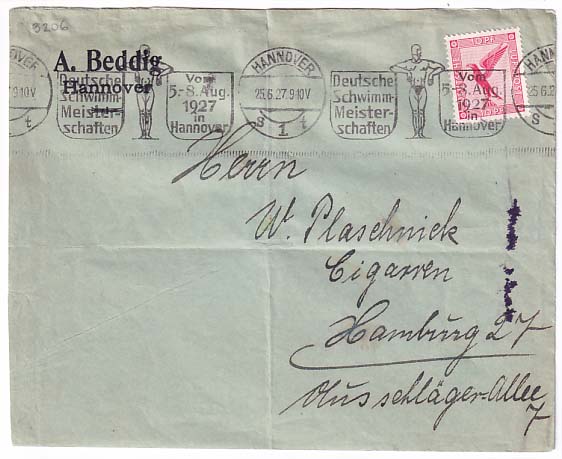 3206
A. Beddig
Hannover
Deutsche
Schwimm-
Meister-
schaften
Vom
5.-8. Aug.
1927
in
Hannover
HANNOVER
25.6.27.9-10V
s 1 t
Deutsche
Schwimm-
Meister-
schaften
Vom
5.-8. Aug.
1927
in
Hannover
10 PF
Herrn
W. Plaschnick
Cigarren
Hamburg 27
Ausschläger-Allee
7